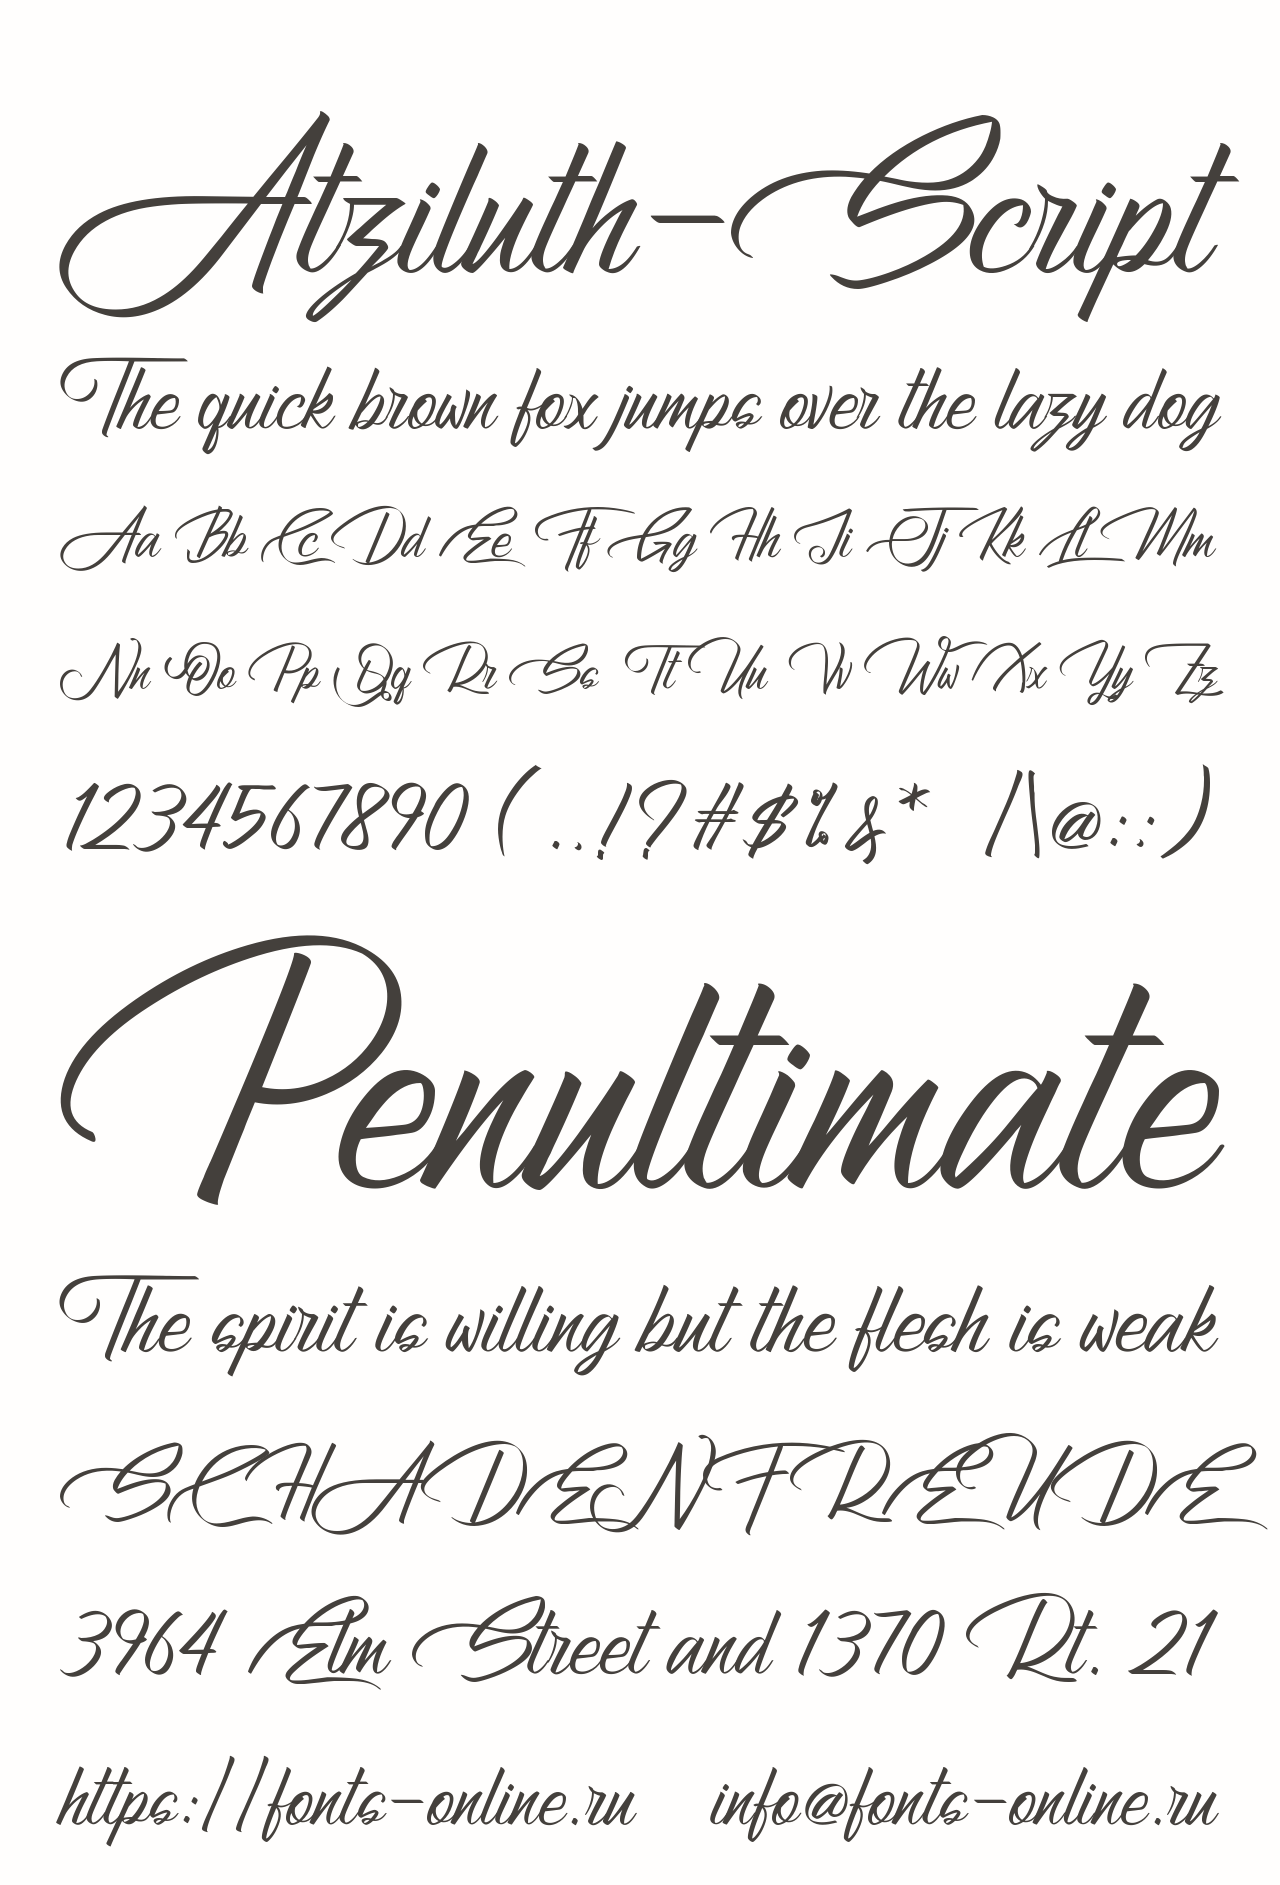 Atziluth-Script
The quick brown fox jumps over the lazy dog
Aa Bb Cc Dd Ee Ff Gg Hh Ii Jj Kk Ll Mm
Nn Oo Pp Qq Rr Ss Tt Uu Vv Ww Xx Yy Zz
1234567890 ( ..!?#$%&* /\@:;)
Penultimate
The spirit is willing but the flesh is weak
SCHADENFREUDE
3964 Elm Street and 1370 Rt. 21
https://fonts-online.ru info@fonts-online.ru